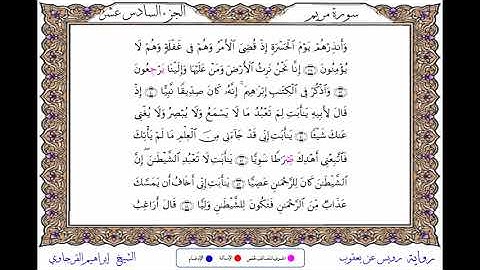 سورة مريم
الجزء السادس عشر
وَأَنذِرْهُمْ يَوْمَ ٱلْحَسْرَةِ إِذْ قُضِىَ ٱلْأَمْرُ وَهُمْ فِى غَفْلَةٍ وَهُمْ لَا
يُؤْمِنُونَ إِنَّا نَحْنُ نَرِثُ ٱلْأَرْضَ وَمَنْ عَلَيْهَا وَإِلَيْنَا يَرْجِعُونَ
وَٱذْكُرْ فِى ٱلْكِتَٰبِ إِبْرَٰهِيمَ ۚ إِنَّهُۥ كَانَ صِدِّيقًا نَّبِيًّا إِذْ
قَالَ لِأَبِيهِ يَٰٓأَبَتِ لِمَ تَعْبُدُ مَا لَا يَسْمَعُ وَلَا يُبْصِرُ وَلَا يُغْنِى
عَنكَ شَيْـًٔا يَٰٓأَبَتِ إِنِّى قَدْ جَآءَنِى مِنَ ٱلْعِلْمِ مَا لَمْ يَأْتِكَ
فَٱتَّبِعْنِىٓ أَهْدِكَ سِرَٰطًا سَوِيًّا يَٰٓأَبَتِ لَا تَعْبُدِ ٱلشَّيْطَٰنَ ۖ إِنَّ
ٱلشَّيْطَٰنَ كَانَ لِلرَّحْمَٰنِ عَصِيًّا يَٰٓأَبَتِ إِنِّىٓ أَخَافُ أَن يَمَسَّكَ
عَذَابٌ مِّنَ ٱلرَّحْمَٰنِ فَتَكُونَ لِلشَّيْطَٰنِ وَلِيًّا قَالَ أَرَاغِبٌ
رواية رويس عن يعقوب
الإمالة
الإدغام
الشيخ إبراهيم الفرجاوي